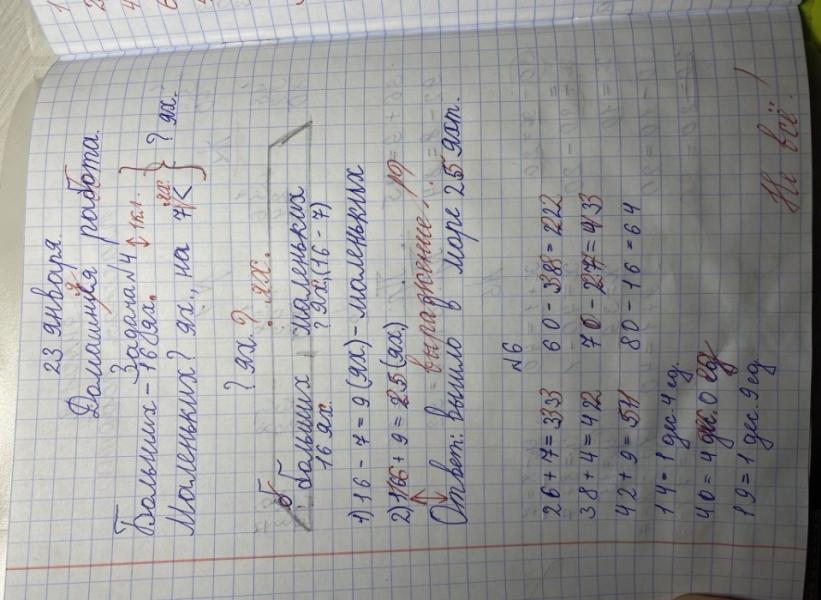 23 января.
Домашняя работа.
Задача №4 1кл.
Больших - 16 ях.
Маленьких ? ях., на 7 ях. < } ? ях.
? ях. ? ях.
больших маленьких
16 ях ? ях, (16 - 7)
1) 16 - 7 = 9 (ях) - маленьких
2) 16 + 9 = 25 (ях)
выражение!
Ответ: вышло в море 25 яхт.
№6
26 + 7 = 33 60 - 38 = 22
38 + 4 = 42 70 - 27 = 43
42 + 9 = 51 80 - 16 = 64
14 = 1 дес. 4 ед.
40 = 4 дес. 0 ед
19 = 1 дес. 9 ед
Не всё!